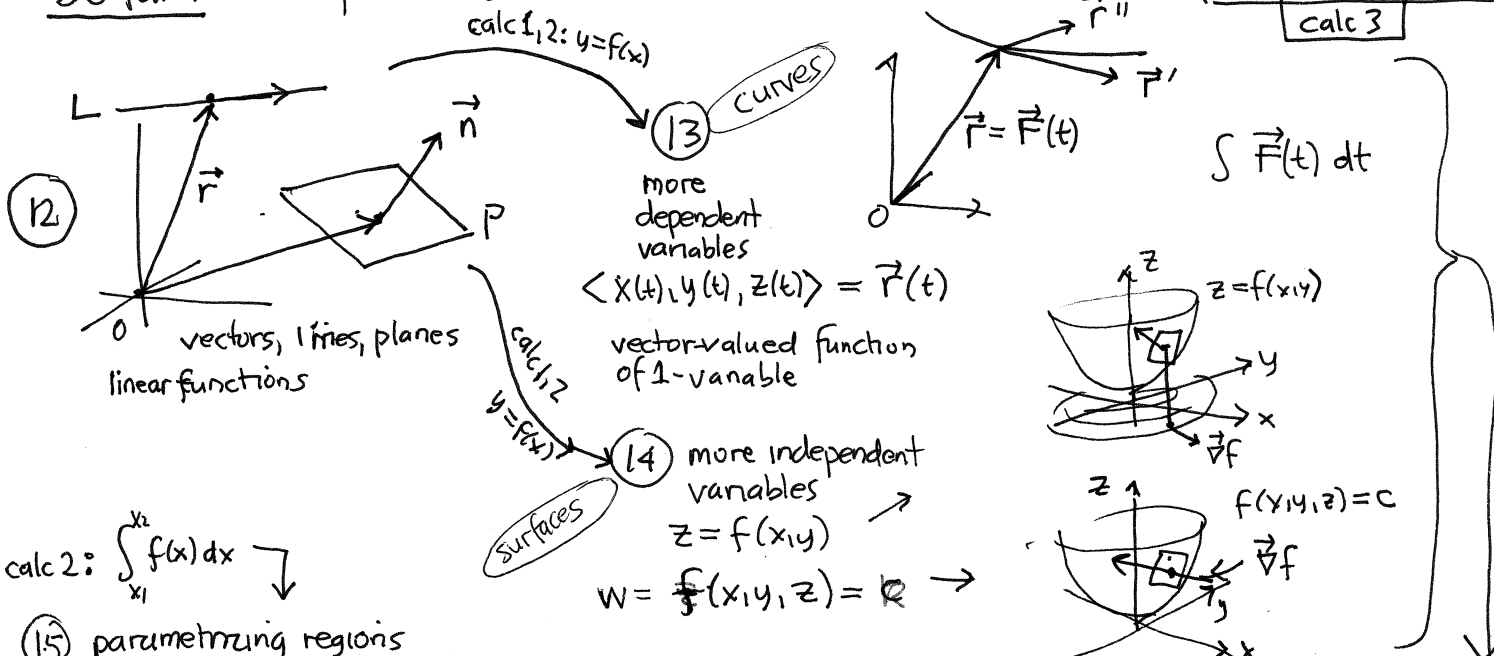 calc 1,2: y=f(x)
calc 3
L
r⃗
12
n⃗
P
O
vectors, lines, planes
linear functions
13
curves
more
dependent
variables
<x(t), y(t), z(t)> = r⃗(t)
vector-valued function
of 1-variable
r⃗''
r⃗'
r⃗ = F⃗(t)
O
∫ F⃗(t) dt
calc 1,2
y=f(x)
14
surfaces
more independent
variables
z = f(x,y)
w = f(x,y,z) =
z
z=f(x,y)
y
x
∇⃗f
z
f(x,y,z)=c
∇⃗f
y
x
calc 2: ∫x₁x₂ f(x) dx
15 parametrizing regions